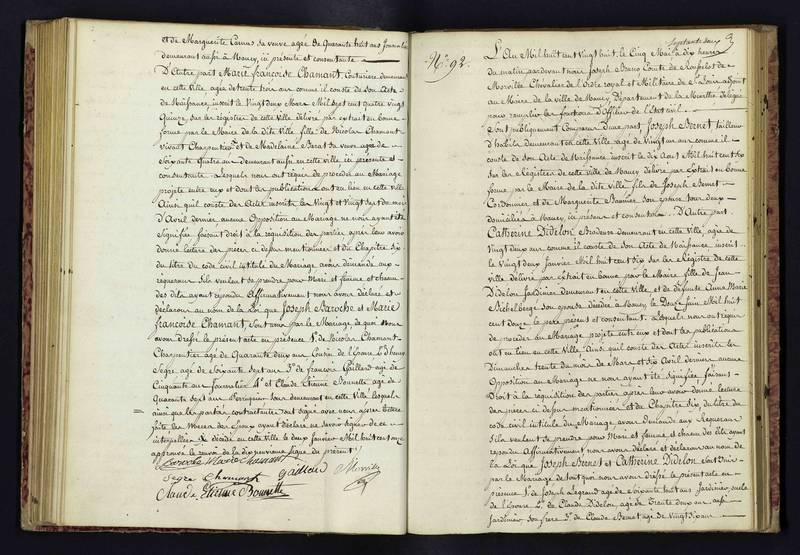 et de Marguerite Camus sa veuve agée de Quarante huit ans Journalière
demeurant aussi à Nancy, ici présente et consentante
D'Autre part Marie francoise Chamant, Couturière demeurant
en cette ville, agée de trente trois ans comme il conste de son Acte
de Naissance, inscrit le Vingt deux Mars Mil sept cent quatre vingt
Quinze, sur les régistres de cette ville délivré par extrait en bonne
forme par le Maire de la dite Ville fille de Nicolas Chamant
vivant Charpentier et de Madelaine Barat sa veuve agée de
Soixante Quatre ans demeurant aussi en cette ville ici présente et
consentante. Lesquels nous ont réquis de procéder au Mariage
projeté entre eux et dont les publications ont eu lieu en cette ville
Ainsi qu'il conste des Actes inscrits les Vingt et Vingt sept du mois
d'Avril dernier aucune Opposition au Mariage ne nous ayant été
signifiée faisant droit à la réquisition des parties après leur avoir
donné lecture des pièces ci dessus mentionnées et du Chapitre Six
du titre du code civil intitulé du Mariage avons demandé aux
requérans s'ils veulent se prendre pour Mari et femme et chacun
des dits ayant répondu Affirmativement nous avons déclaré et
déclarons au nom de la Loi que Joseph Baroche et Marie
francoise Chamant sont unis par le Mariage de quoi Nous
avons dressé le présent acte en présence 1°. de Nicolas Chamant
Charpentier agé de Quarante deux ans Cousin de l'Epouse 2°. d'
Segre agé de Soixante Sept ans 3°. de francois Gaillard agé de
Cinquante ans Journalier 4°. et Claude Etienne Bonnette agé de
Quarante Sept ans Perruquier tous demeurant en cette Ville lesquels
ainsi que les parties contractantes ont signé avec nous après lecture
faite les Mères des Epoux ayant déclaré ne savoir signer de ce
interpellées & décédé en cette ville le deux Janvier Mil huit cent onze
approuvé le renvoi de la dixneuvieme ligne du présent
Baroche Marie Chamant
Segre Chamant Gaillard Morville
Claude Etienne Bonnette
Septante deux
N°. 92.
L'An Mil huit cent Vingt huit, le Cinq Mai à dix heures
du matin pardevant nous Joseph Bruno Comte de
Morville Chevalier de l'Ordre royal et Militaire de St. Louis adjoint
au Maire de la ville de Nancy Département de la Meurthe délégué
pour remplir les fonctions d'Officier de l'Etat civil.
Sont publiquement Comparus d'une part, Joseph Bernet tailleur
d'habits demeurant en cette Ville agé de Vingt ans comme il
conste de son Acte de Naissance inscrit le dix Aout Mil huit cent Six
sur les Régistres de cette ville de Nancy délivré par Extrait en bonne
forme par le Maire de la dite Ville fils de Joseph Bernet
Cordonnier et de Marguerite Bannier son épouse tous deux
domiciliés à Nancy ici présens et consentans. D'Autre part
Catherine Didelon Brodeuse demeurant en cette Ville, agée de
Vingt deux ans comme il conste de son Acte de Naissance inscrit
le Vingt deux Janvier Mil huit cent Six sur les Régistres de cette
ville délivré par Extrait en bonne par le Maire fille de Jean
Didelon Jardinier demeurant en cette Ville, et de défunte Anne Marie
Richelberge son épouse décédée à Nancy le Douze Juin Mil huit
cent douze le père présent et consentant. Lesquels nous ont réquis
de procéder au Mariage projeté entre eux et dont les publications
ont eu lieu en cette Ville Ainsi qu'il conste des Actes inscrits les
Dimanches trente du mois de Mars et Six Avril derniers aucune
Opposition au Mariage ne nous ayant été signifiée, faisant
Droit à la réquisition des parties après leur avoir donné lecture
des pièces ci dessus mentionnées et du Chapitre Six, du titre du
code civil intitulé du Mariage, avons demandé aux Requérans
S'ils veulent se prendre pour Mari et femme, et chacun d'eux ayant
répondu Affirmativement nous avons déclaré et déclarons au nom de
la Loi que Joseph Bernet et Catherine Didelon sont Unis
par le Mariage de tout quoi nous avons dressé le présent acte en
présence 1°. de Joseph Legrand agé de Soixante huit ans Jardinier, oncle
de l'épouse 2°. de Claude Didelon, agé de Trente deux ans aussi
Jardinier son frère 3°. de Claude Bernet agé de Vingt Six ans